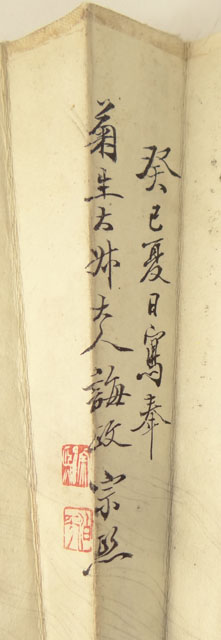 癸巳夏日寫奉
菊生大姊大人誨政 宗熙